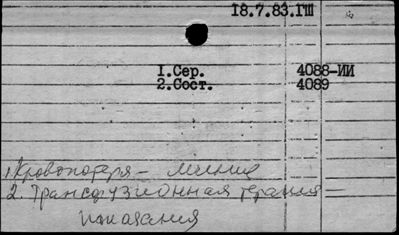 18.7.83.ГШ
1.Сер. 4088-ИИ
2.Сост. 4089
1. Кровопотеря – лечение
2. Трансфузионная терапия –
показания